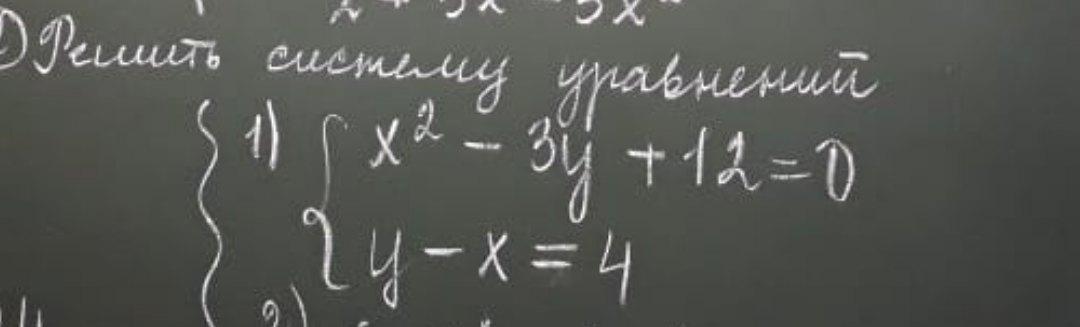 Решить систему уравнений
1) { x² - 3y + 12 = 0
y - x = 4
2)